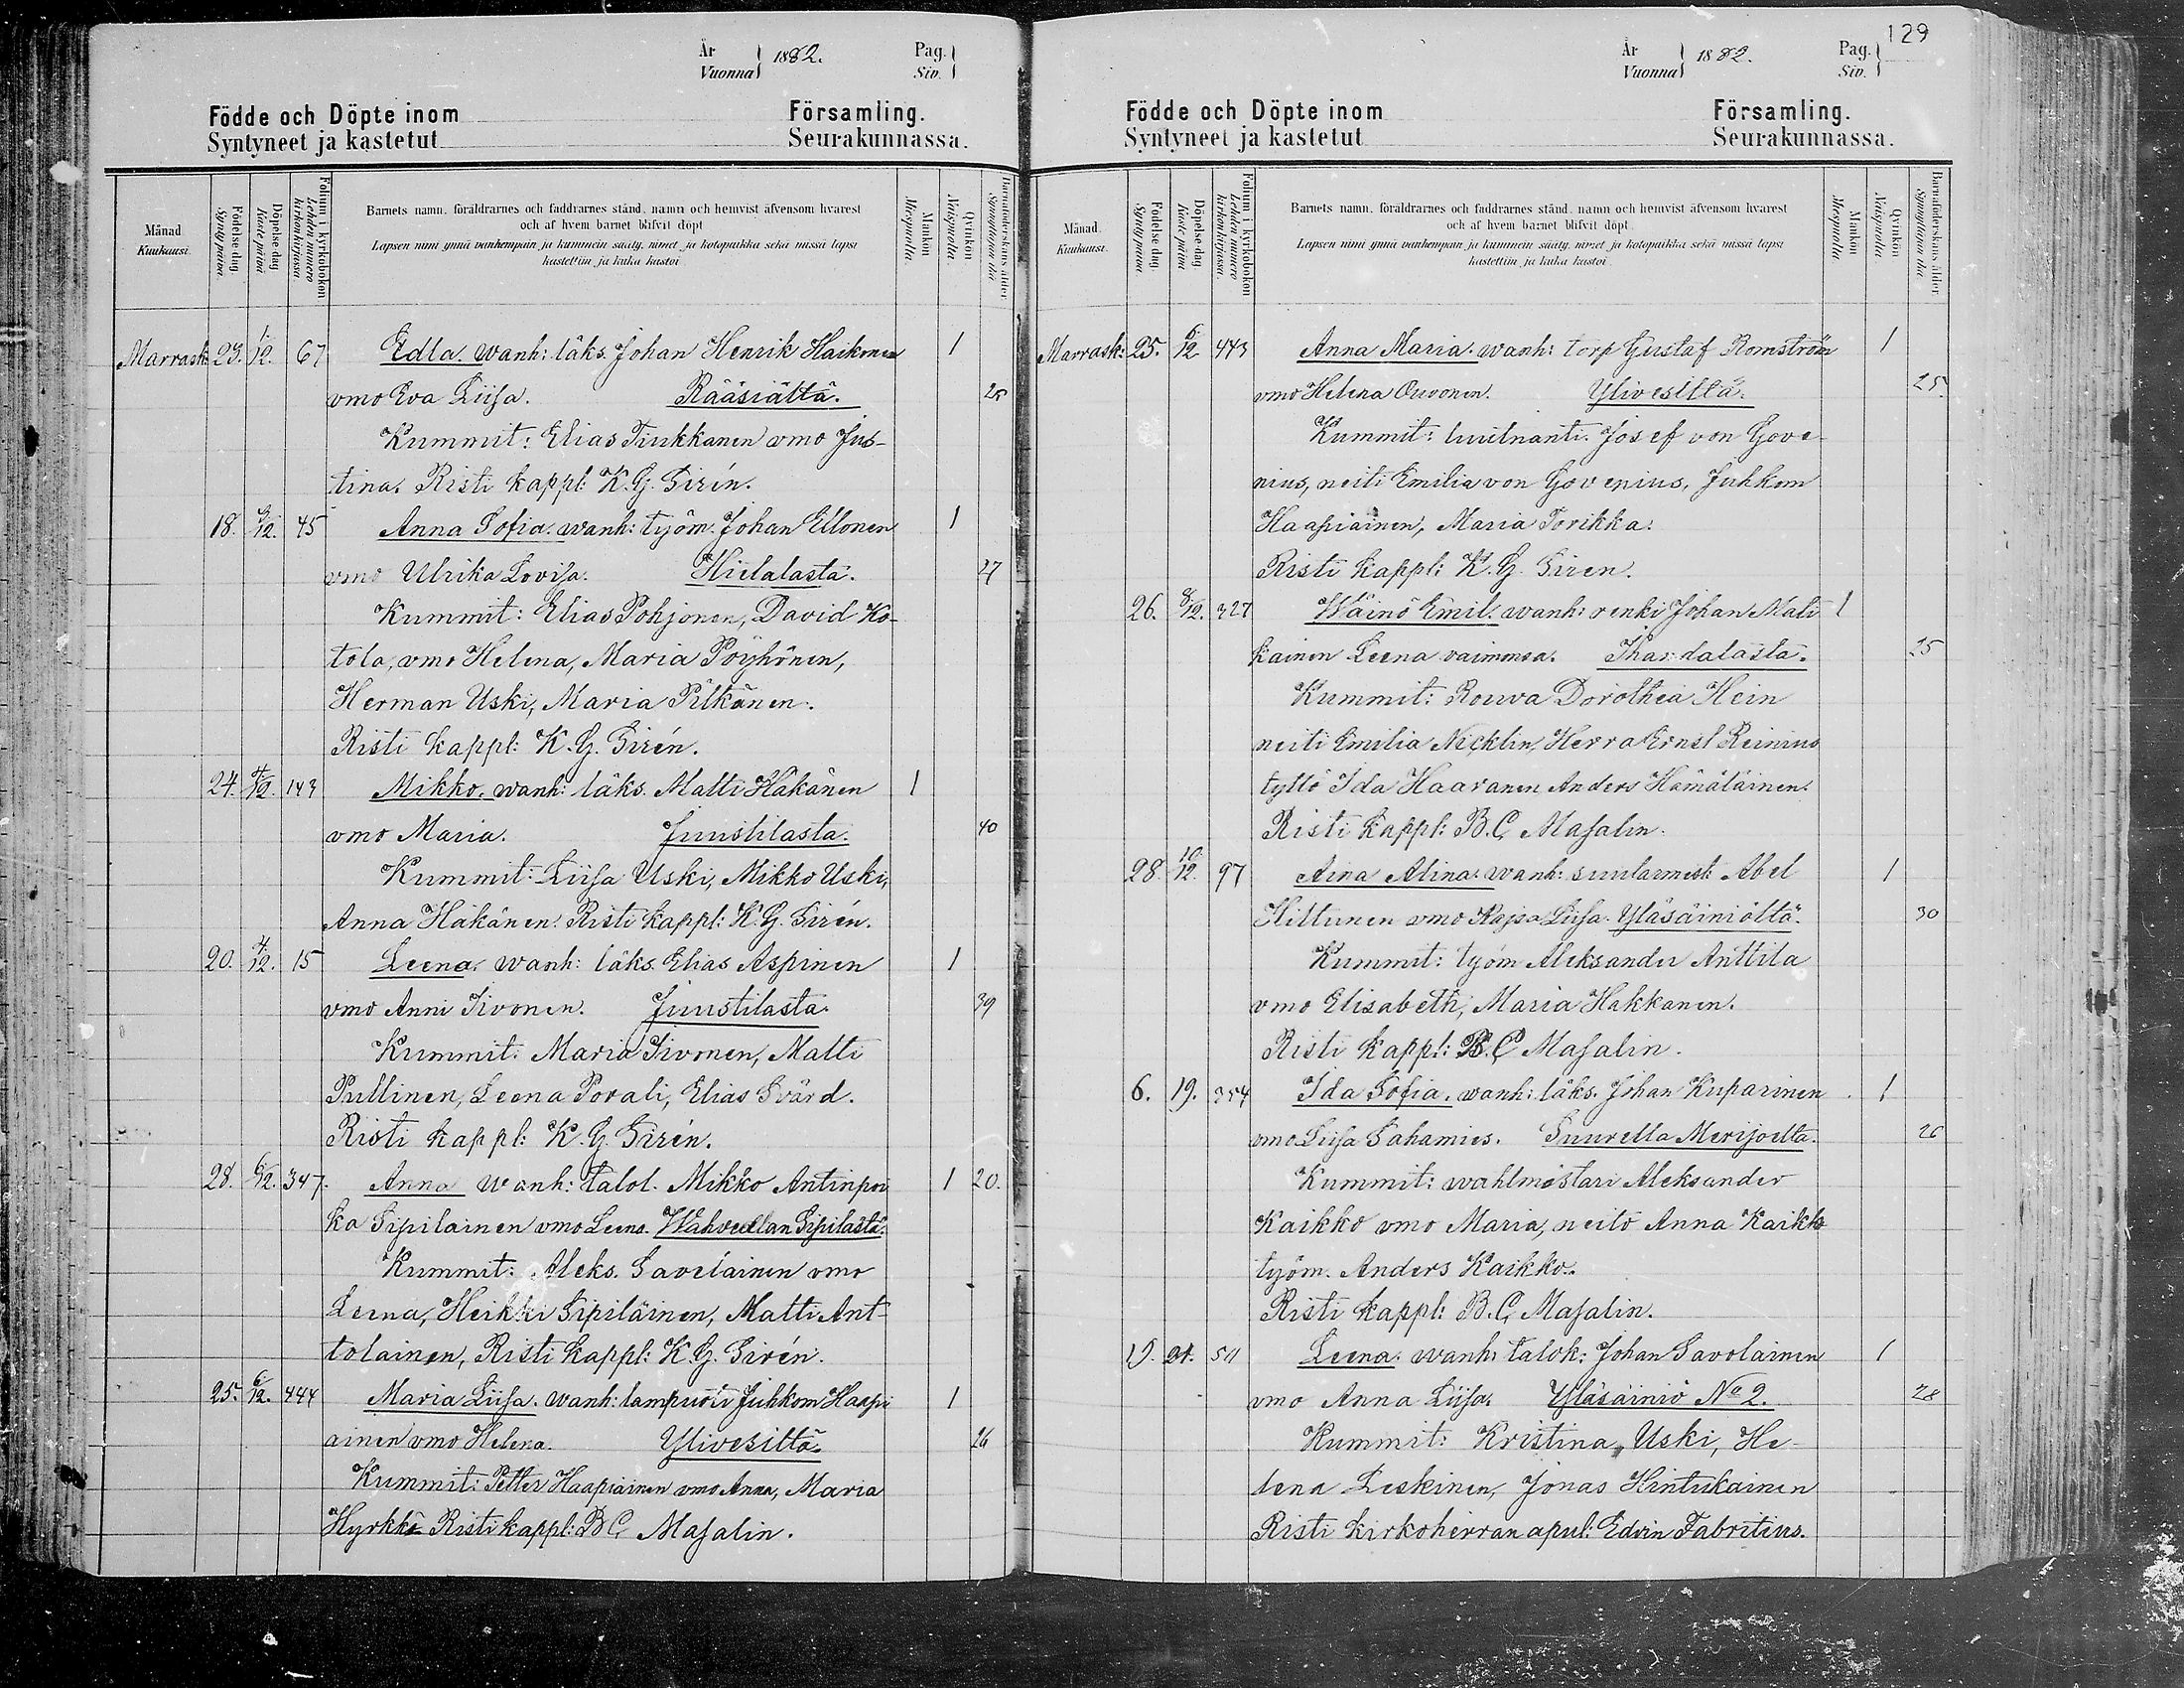 År Vuonna 1882. Pag. Siv.
Födde och Döpte inom Församling.
Syntyneet ja kastetut Seurakunnassa.
Månad Kuukausi.
Födelse dag Synty päivä.
Döpelse dag Kaste päivä
Folium i kyrkoboken Lehden numero kirkonkirjassa.
Barnets namn, föräldrarnes och faddrarnes stånd, namn och hemvist äfvensom hvarest
och af hvem barnet blifvit döpt
Lapsen nimi ynnä vanhempain ja kummein sääty, nimet ja kotopaikka sekä missä lapsi
kastettiin ja kuka kastoi
Mankön Miespuolia.
Qvinkön Naispuolia.
Barnaföderskans ålder Synnyttäjän ikä
Marrask: 23. 1/12. 67 Edla. wanh: läks. Johan Henrik Haikonen 1
vmo Eva Liisa. Rääsiältä. 25
Kummit: Elias Tiukkanen vmo Jus-
tina. Risti kappl: K. G. Sirén.
18. 3/12. 45 Anna Sofia. wanh: työm. Johan Ellonen 1
vmo Ulrika Lovisa. Hietalasta. 27
Kummit: Elias Pohjonen, David Ko-
tola, vmo Helena, Maria Pöyhönen,
Herman Uski, Maria Pitkänen.
Risti kappl: K. G. Sirén.
24. 4/12. 143 Mikko. wanh: läks. Matti Häkänen 1
vmo Maria. Juustilasta. 40
Kummit: Liisa Uski, Mikko Uski,
Anna Häkänen. Risti kappl: K. G. Sirén.
20. 4/12. 15 Leena. wanh: läks. Elias Aspinen 1
vmo Anni Iivonen. Juustilasta. 39
Kummit: Maria Iivonen, Matti
Pullinen, Leena Porali, Elias Svärd.
Risti kappl: K. G. Sirén.
28. 6/12. 347. Anna wanh: talol. Mikko Antinpoi 1 20.
ka Sipilainen vmo Leena. Wahvellan Sipilästä.
Kummit: Aleks. Savelainen vmo
Leena, Heikki Sipiläinen, Matti Ant-
tolainen, Risti kappl: K. G. Sirén.
25. 6/12. 444 Maria Liisa. wanh: lampuoti Juhkom Haapi 1
ainen vmo Helena. Ylivesiltä. 26
Kummit: Petter Haapiainen vmo Anna, Maria
Hyrkkö Risti kappl: B C, Masalin.
129
År Vuonna 1882. Pag. Siv.
Födde och Döpte inom Församling.
Syntyneet ja kastetut Seurakunnassa.
Månad Kuukausi.
Födelse dag Synty päivä.
Döpelse dag Kaste päivä
Folium i kyrkoboken Lehden numero kirkonkirjassa.
Barnets namn, föräldrarnes och faddrarnes stånd, namn och hemvist äfvensom hvarest
och af hvem barnet blifvit döpt.
Lapsen nimi ynnä vanhempain ja kummein sääty, nimet ja kotopaikka sekä missä lapsi
kastettiin ja kuka kastoi
Mankön Miespuolia
Qvinkön Naispuolia
Barnaföderskans ålder. Synnyttäjän ikä.
Marrask: 25. 6/12 443 Anna Maria. wanh: torp Gustaf Romström 1
vmo Helena Ouvonen. Ylivesiltä. 25.
Kummit: luutnanti. Josef von Gove-
nius, neiti Emilia von Govenius, Juhkom
Haapiainen, Maria Torikka.
Risti kappl: K. G. Siren.
26. 8/12. 327 Wäinö Emil. wanh: renki Johan Mati 1
kainen Leena vaimonsa. Ihantalasta. 25
Kummit: Rouva Dorothea Hein
neiti Emilia Necklin, Herra Ernst Reinius
tyttö Ida Haaranen Anders Hämäläinen.
Risti kappl: B. C, Masalin.
28. 10/12. 97 Aina Alina. wanh: suutarmest: Abel 1
Hittunen vmo Kajsa Liisa. Yläsäiniöltä. 30
Kummit: työm Aleksander Anttila
vmo Elisabeth, Maria Hakkanen.
Risti kappl: B. C Masalin.
6. 19. 354 Ida Sofia. wanh: läks. Johan Kuparinen 1
vmo Liisa Sahamies. Suurella Merijoelta. 26
Kummit: wahtmöstari Aleksander
Kaikko vmo Maria, neito Anna Kaikko
työm. Anders Kaikko.
Risti kappl: B. C, Masalin.
19. 21. 511 Leena. wanh: talok: Johan Savolainen 1
vmo Anna Liisa. Yläsäiniö No 2. 28
Kummit: Kristina Uski, He-
lena Leskinen, Jonas Hintukainen
Risti kirkoherran apul: Edvin Fabritius.